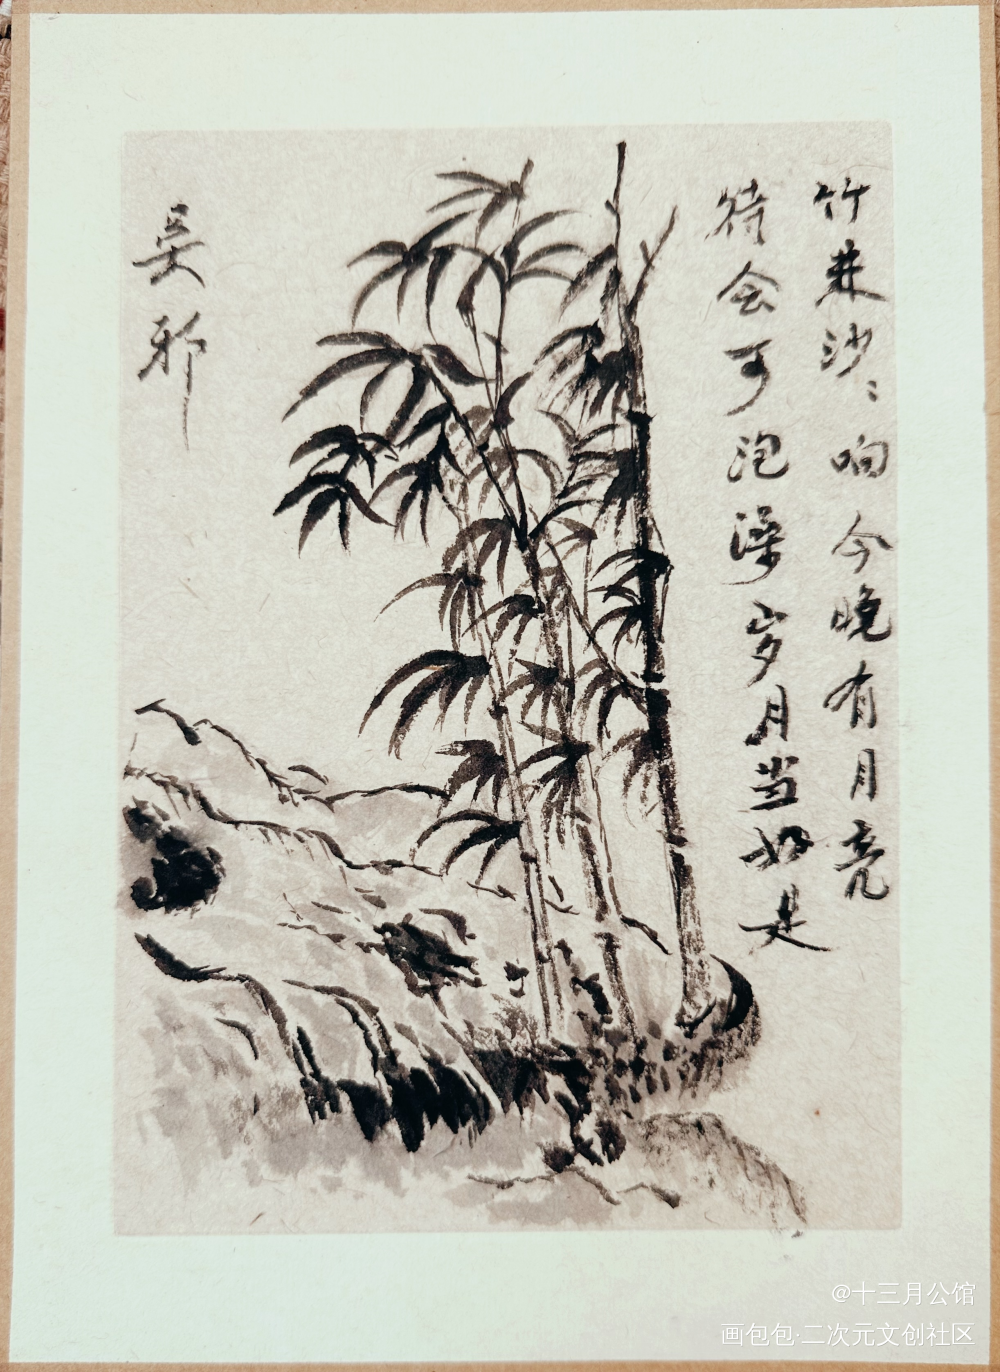 竹林沙々响今晚有月亮
待会可泡澡岁月当如是
吴邪
@十三月公馆
画包包·二次元文创社区